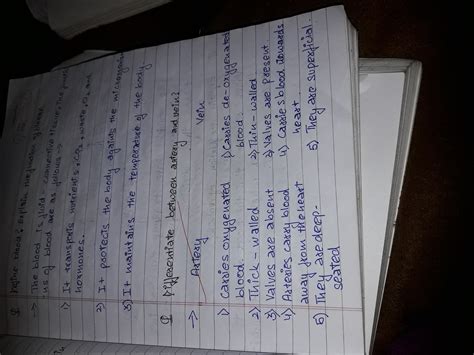 Q Define blood & explain
→ The blood is fluid connective tissue. The func
ions of blood are as follows →
1) It transports nutrients, and
hormones.
2) It protects the body against the microorganis
3) It maintains the temperature of the body
Q Differentiate between artery and vein?
→ Artery Vein
1) Carries oxygenated 1) Carries de-oxygenated
blood blood.
2) Thick - walled 2) Thin - walled
3) Valves are absent 3) Valves are present.
4) Arteries carry blood 4) Carries blood towards
away from the heart heart
5) They are deep- 5) They are superficial.
seated